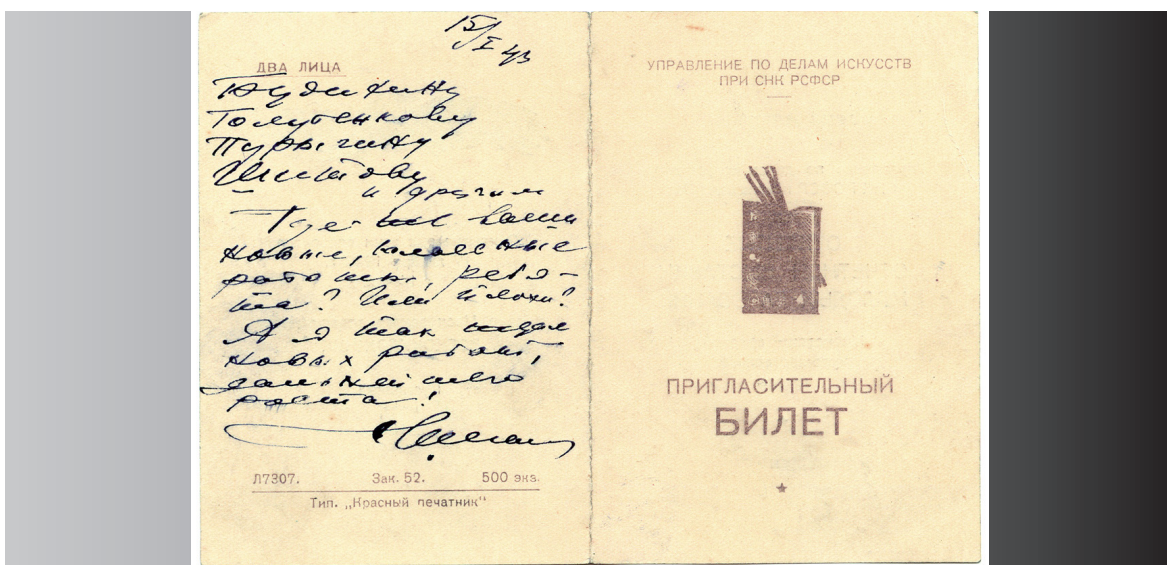 15/I 43
ДВА ЛИЦА
Голубенкову
Пурыгину
Шитову
и другим
Где же ваши
новые, классные
работы, ребя-
та? Или плохи?
А я так ждал
новых работ,
дальнейшего
роста!
Л7307. Зак. 52. 500 экз.
Тип. „Красный печатник“
УПРАВЛЕНИЕ ПО ДЕЛАМ ИСКУССТВ
ПРИ СНК РСФСР
ПРИГЛАСИТЕЛЬНЫЙ
БИЛЕТ